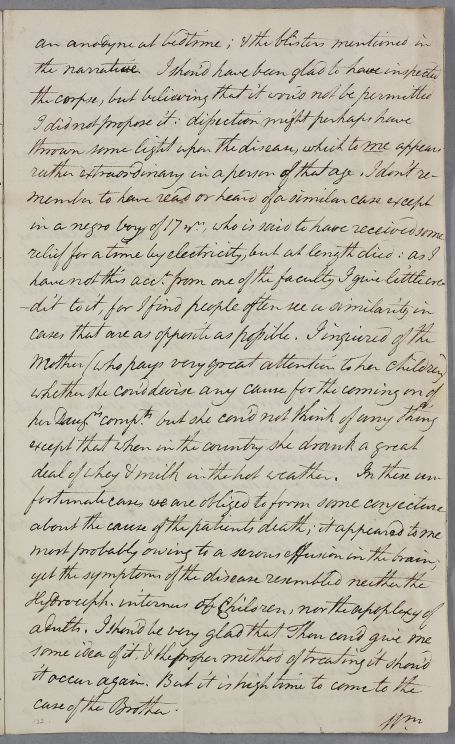 an anodyne at bedtime; & the blisters mentioned in
the narrative. I shou'd have been glad to have inspected
the corpse, but believing that it wou'd not be permitted
I did not propose it: dissection might perhaps have
thrown some light upon the disease, which to me appears
rather extraordinary in a person of that age. I don't re-
member to have read or heard of a similar case except
in a negro boy of 17 yrs, who is said to have received some
relief for a time by electricity, but at length died: as I
have not this acct. from one of the faculty I give little cre-
-dit to it, for I find people often see a similarity in
cases that are as opposite as possible. I inquired of the
Mother (who pays very great attention to her children)
whether she cou'd devise any cause for the coming on of
her Daugrs compts. but she cou'd not think of any thing
except that when in the country she drank a great
deal of whey & milk in the hot weather. In these un-
fortunate cases we are obliged to form some conjecture
about the cause of the patients death; it appeared to me
most probably owing to a serous effusion in the brain;
yet the symptoms of the disease resembled neither the
Hydroceph. internus of Children, nor the apoplexy of
adults. I shou'd be very glad that Thou cou'd give me
some idea of it, & the proper method of treating it shou'd
it occur again. But it is high time to come to the
case of the Brother.
Wm